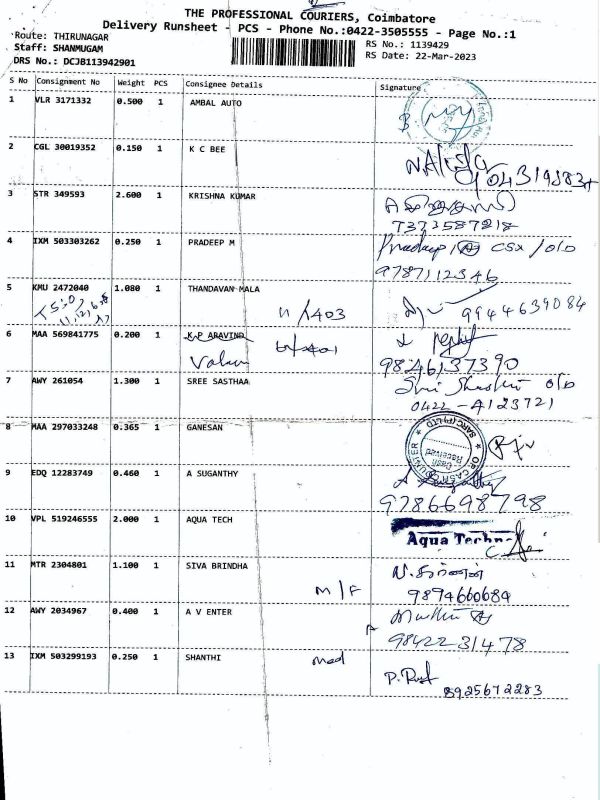 THE PROFESSIONAL COURIERS, Coimbatore
Delivery Runsheet - PCS - Phone No.:0422-3505555 - Page No.:1
Route: THIRUNAGAR
Staff: SHANMUGAM
DRS No.: DCJB113942901
RS No.: 1139429
RS Date: 22-Mar-2023
S No Consignment No Weight PCS Consignee Details Signature
1 VLR 3171332 0.500 1 AMBAL AUTO
2 CGL 30019352 0.150 1 K C BEE
3 STR 349593 2.600 1 KRISHNA KUMAR
7373587218
4 IXM 503303262 0.250 1 PRADEEP M Pradeep
9787112346
5 KMU 2472040 1.080 1 THANDAVAN MALA
9944639084
6 MAA 569841775 0.200 1 K.P ARAVIND
9826137390
7 AWY 261054 1.300 1 SREE SASTHAA
0422-4123721
8 MAA 297033248 0.365 1 GANESAN
Cash
Received
9 EDQ 12283749 0.460 1 A SUGANTHY
9786698798
10 VPL 519246555 2.000 1 AQUA TECH
Aqua Techno
11 MTR 2304801 1.100 1 SIVA BRINDHA
M/F
9894660684
12 AWY 2034967 0.400 1 A V ENTER
9842231478
13 IXM 503299193 0.250 1 SHANTHI
8925672283